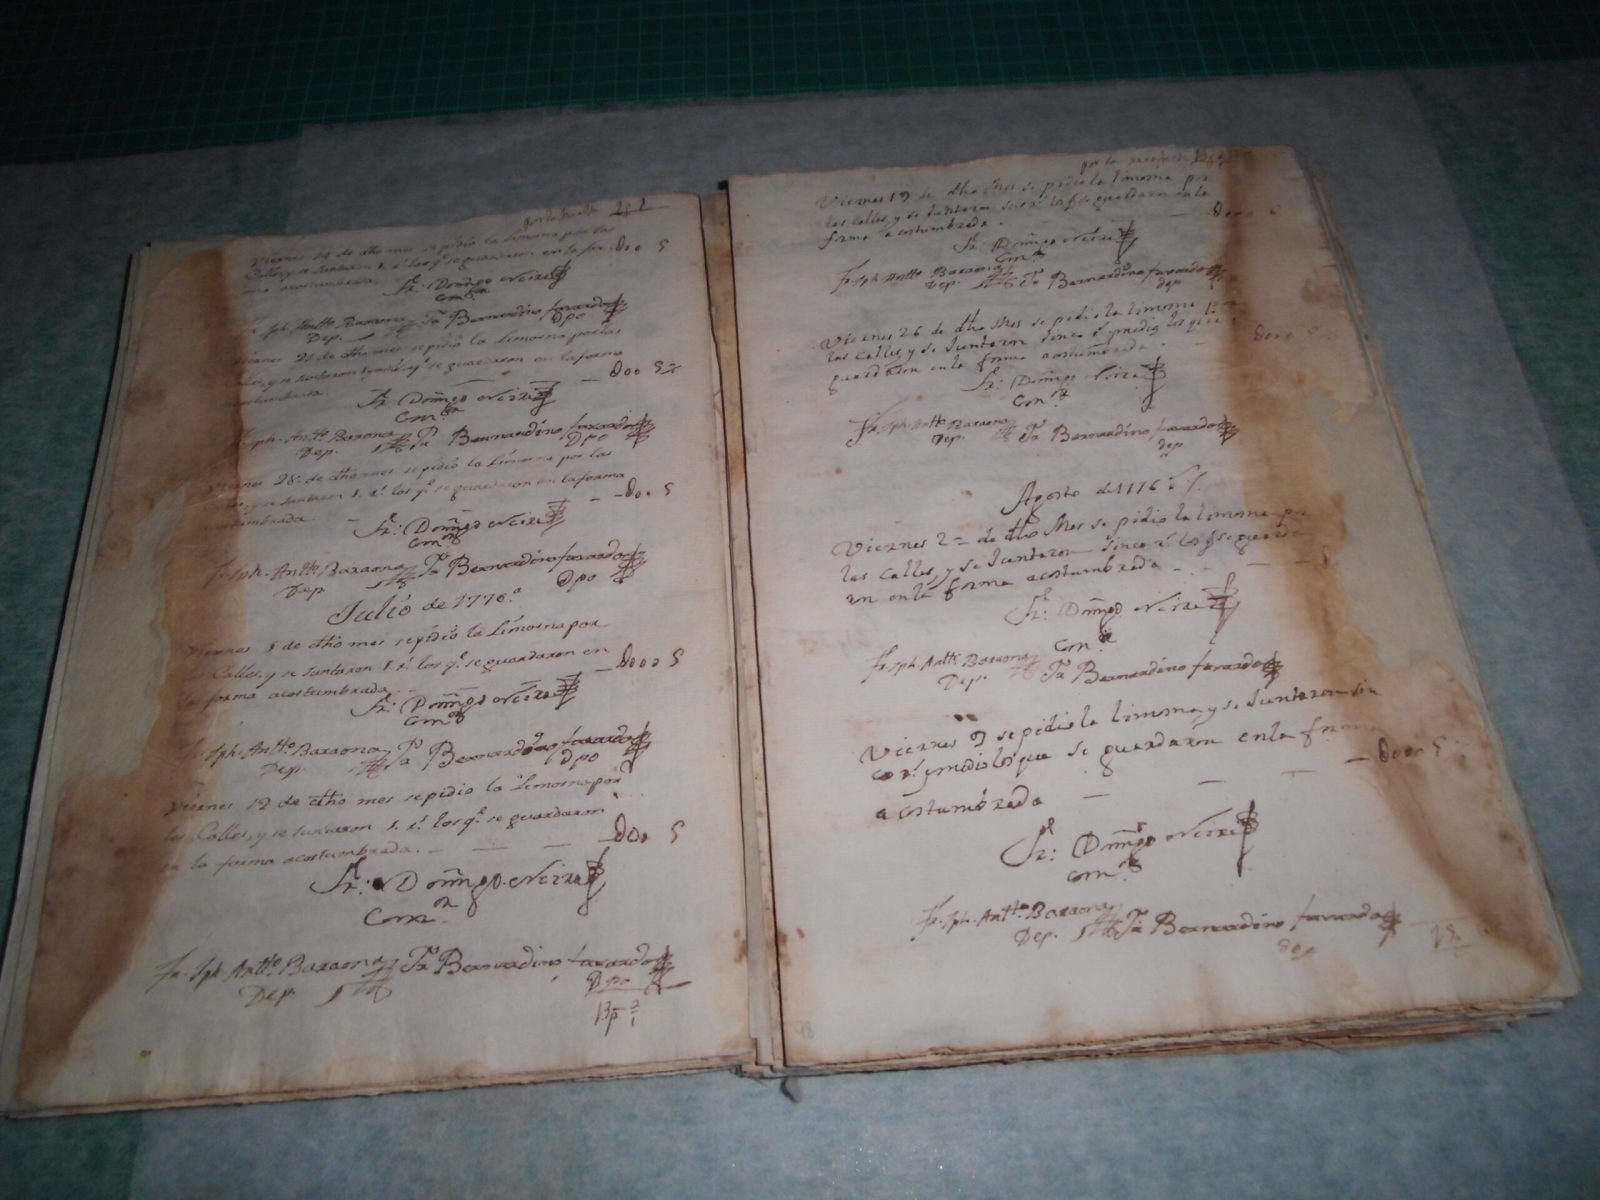 Viernes 14 de dho mes se pidió la Limosna por las
Calles, y se juntaron 5 r.s los q.e se guardaron en la for- D00 5
ma acostumbrada.
Fr. Domingo Neira
Com.or
Fr. Jph. Antto. Baraona Fr. Bernardino faxardo
Dep. Dpo
Viernes 21 de dho mes se pidió la Limosna por las
Calles, y se juntaron q.e se guardaron en la forma
acostumbrada. D00 5
Fr. Domingo Neira
Com.or
Fr. Jph. Antto. Baraona Fr. Bernardino faxardo
Dep. Dpo
Viernes 28 de dho mes se pidió la Limosna por las
Calles, y se juntaron 5 r.s los q.e se guardaron en la forma
acostumbrada. D00 5
Fr. Domingo Neira
Com.or
Fr. Jph. Antto. Baraona Fr. Bernardino faxardo
Dep. Dpo
Julio de 1776.a
Viernes 5 de dho mes se pidió la Limosna por
las Calles, y se juntaron 5 r.s los q.e se guardaron en
la forma acostumbrada. D000 5
Fr. Domingo Neira
Com.or
Fr. Jph. Antto. Baraona Fr. Bernardino faxardo
Dep. Dpo
Viernes 12 de dho mes se pidió la Limosna por
las Calles, y se juntaron 5 r.s los q.e se guardaron
en la forma acostumbrada. D00 5
Fr. Domingo Neira
Com.or
Fr. Jph. Antto. Baraona Fr. Bernardino faxardo
Dep. Dpo
Viernes 19 de dho Mes se pidio la limosna por
las Calles, y se Juntaron los q.e se guardaron en la
forma acostumbrada.
Fr. Domingo Neira
Com.or
Fr. Jph. Antto. Baraona Fr. Bernardino faxardo
Dep. dep
Viernes 26 de dho Mes se pidio la limosna por
las Calles, y se Juntaron sinco r.s y medio los q.e se
guardaron en la forma acostumbrada.
Fr. Domingo Neira
Com.or
Fr. Jph. Antto. Baraona Fr. Bernardino faxardo
Dep. dep
Agosto de 1776
Viernes 2 de dho Mes se pidio la limosna por
las Calles, y se Juntaron sinco r.s los q.e se guarda-
ron en la forma acostumbrada
Fr. Domingo Neira
Com.or
Fr. Jph. Antto. Baraona Fr. Bernardino faxardo
Dep.
Viernes 9 se pidio la limosna, y se Juntaron sin
co r.s y medio los que se guardaron en la forma
acostumbrada D000 5
Fr. Domingo Neira
Com.or
Fr. Jph. Antto. Baraona Fr. Bernardino faxardo
Dep. dep